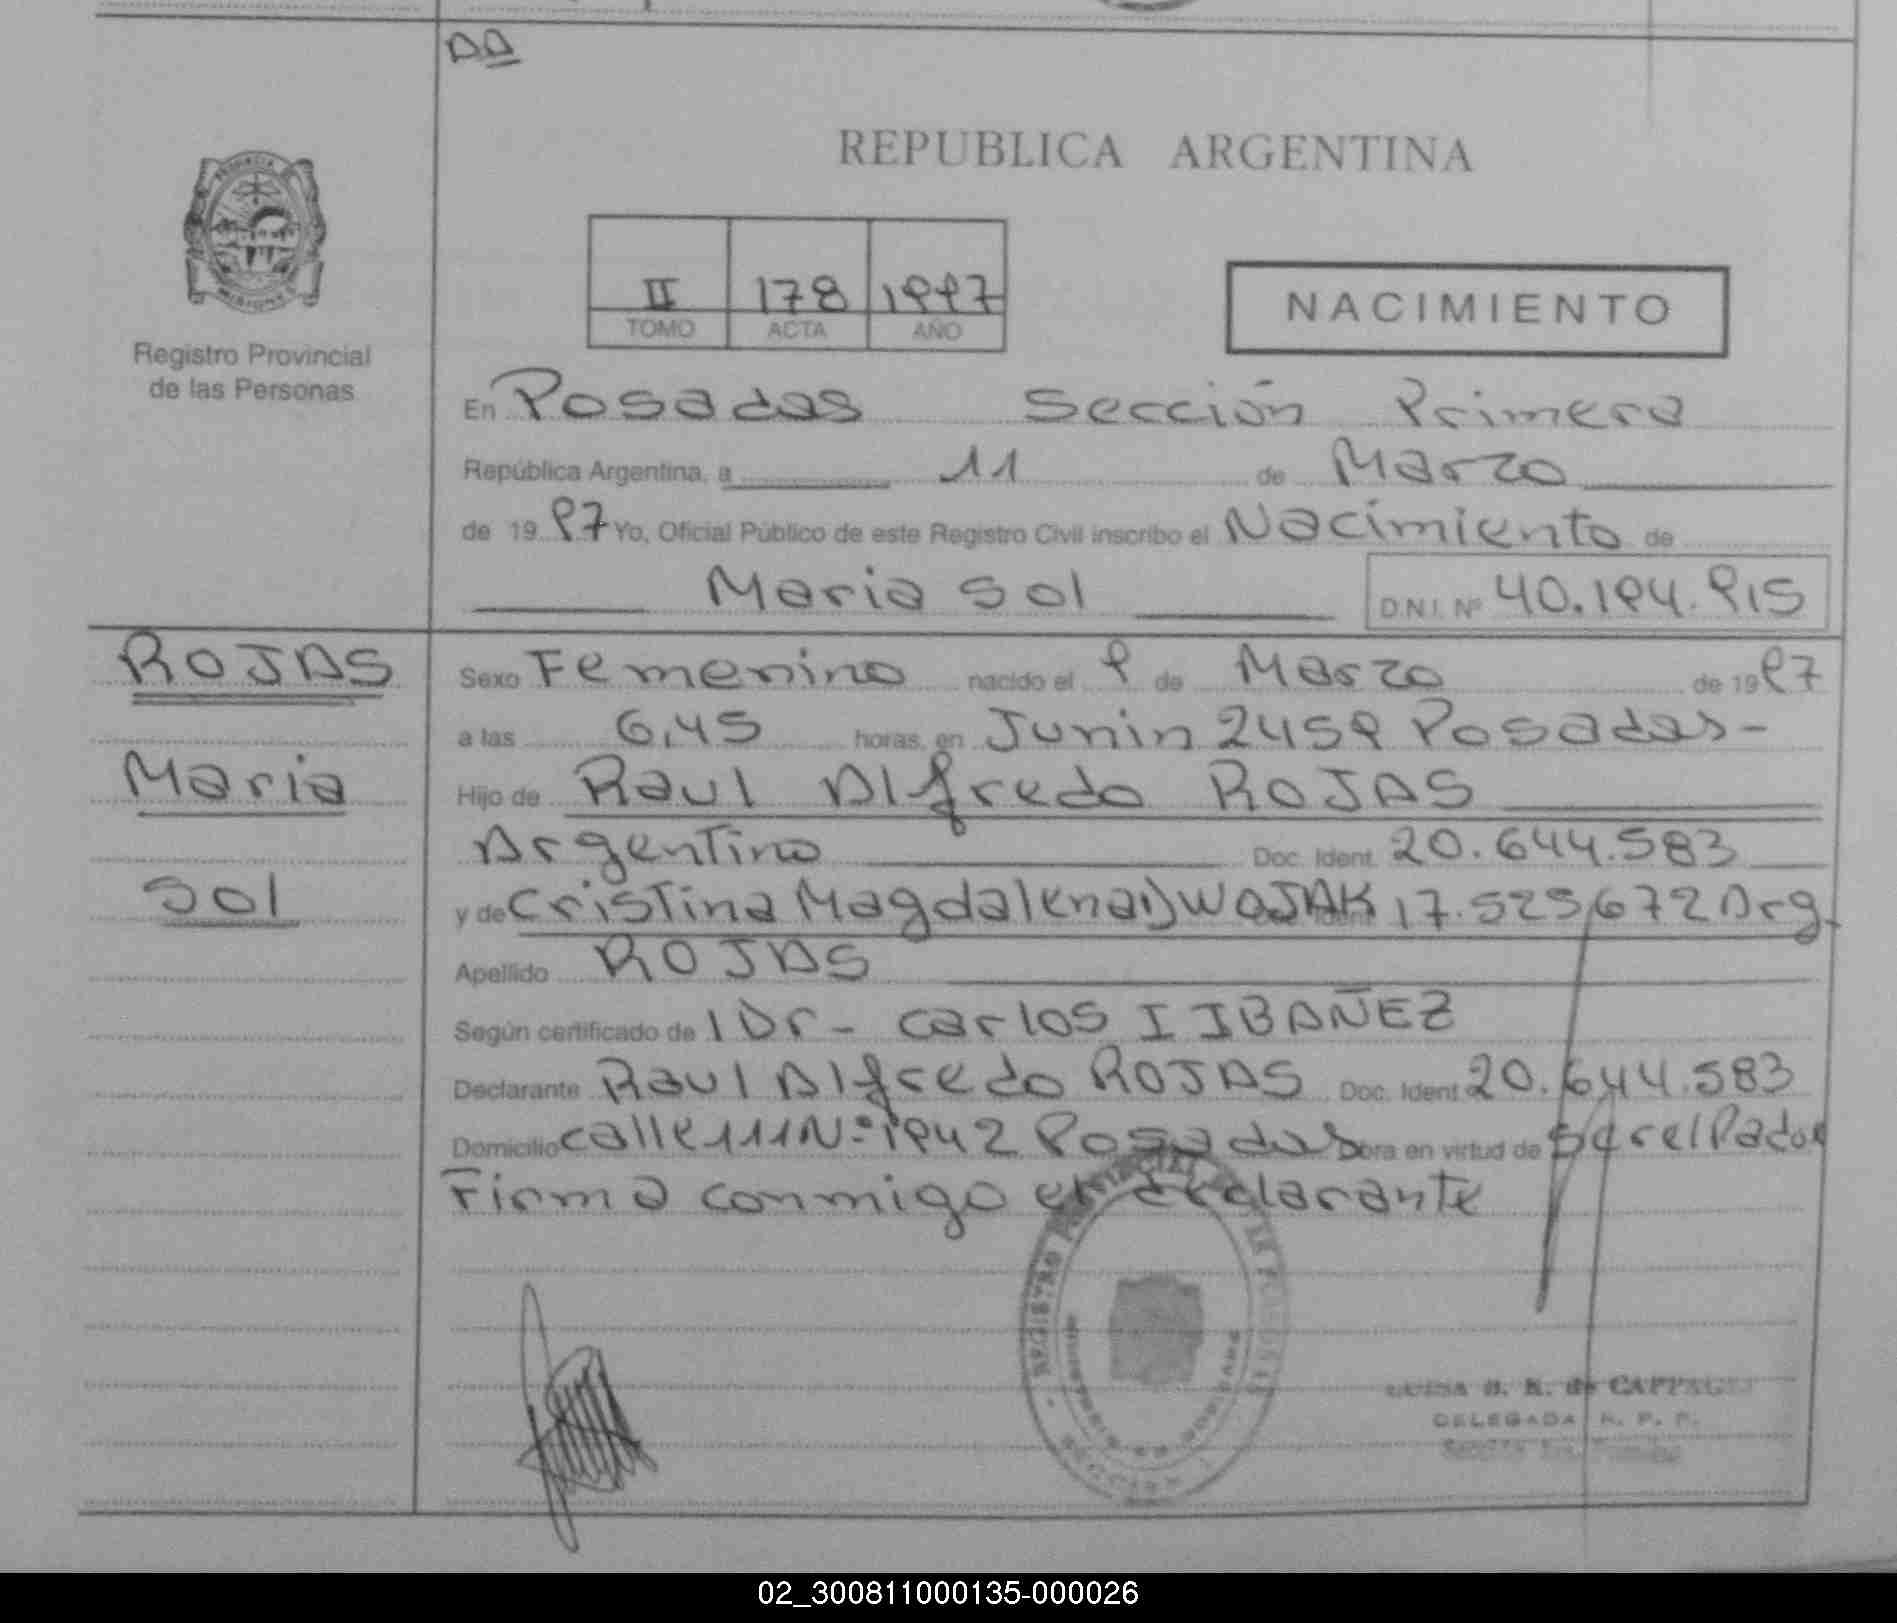 AA
REPUBLICA ARGENTINA
II 178 1997
TOMO ACTA AÑO
NACIMIENTO
Registro Provincial
de las Personas
En Posadas Sección Primera
República Argentina, a 11 de Marzo
de 1997 Yo, Oficial Público de este Registro Civil inscribo el Nacimiento de
Maria Sol D.N.I. Nº 40.194.915
ROJAS
Maria
Sol
Sexo Femenino nacido el 9 de Marzo de 1997
a las 6,45 horas, en Junin 2459 Posadas-
Hijo de Raul Alfredo ROJAS
Argentino Doc. Ident. 20.644.583
y de Cristina Magdalena DWOJAK 17.525672 Arg.
Apellido ROJAS
Según certificado de l Dr- Carlos I IBAÑEZ
Declarante Raul Alfredo ROJAS Doc. Ident 20.644.583
Domicilio calle 111 Nº 1942 Posadas Obra en virtud de ser el Padre
Firma conmigo el declarante
REGISTRO PROVINCIAL DE LAS PERSONAS
MISIONES
POSADAS
SECCION 1
LUISA B. K. de
DELEGADA R. P. P.
02_300811000135-000026